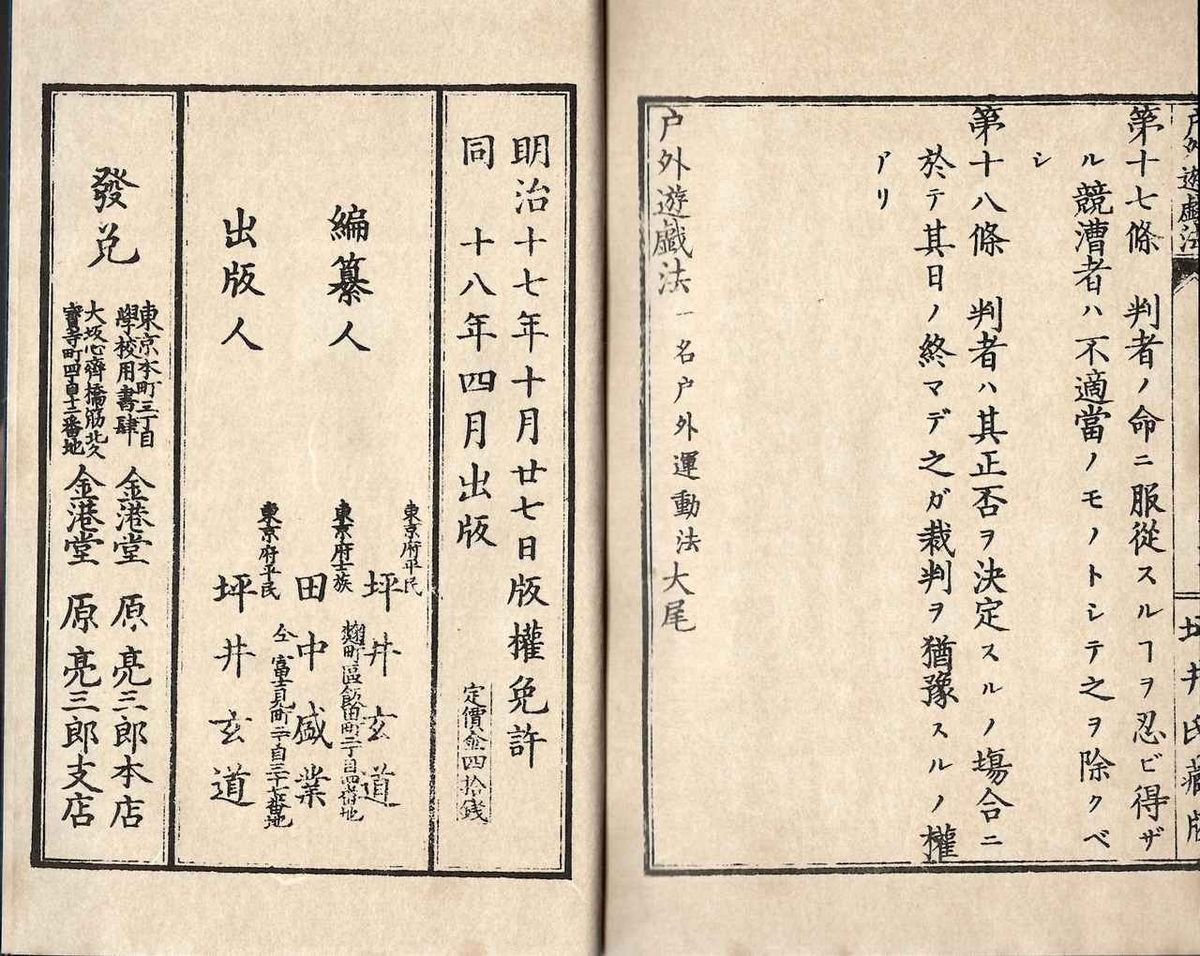 戶外遊戲法
坪井氏藏版
第十七條 判者ノ命ニ服從スルヿヲ忍ビ得ザ
ル競漕者ハ不適當ノモノトシテ之ヲ除クベ
シ
第十八條 判者ハ其正否ヲ決定スルノ塲合ニ
於テ其日ノ終マデ之ガ裁判ヲ猶豫スルノ權
アリ
戶外遊戲法一名戶外運動法大尾
明治十七年十月廿七日版權免許
同 十八年四月出版
定價金四拾錢
編纂人
東京府平民
坪井玄道
東京府士族
田中盛業
麴町區飯田町二丁目四番地
出版人
東京府平民
坪井玄道
仝 富士見町二丁目三十七番地
發兌
東京本町三丁目
學校用書肆
金港堂 原亮三郎本店
大坂心齊橋筋北久
寶寺町四丁目十二番地
金港堂 原亮三郎支店